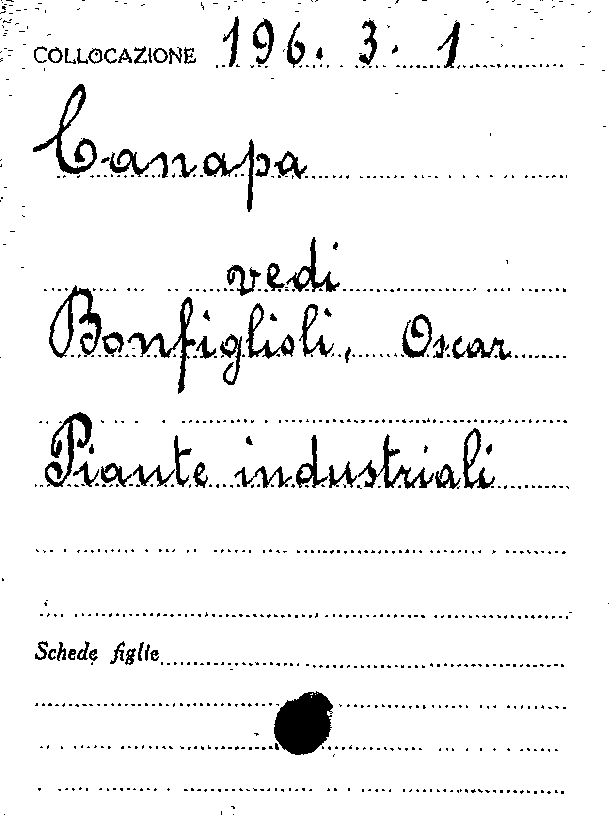 COLLOCAZIONE 196. 3. 1
Canapa
vedi
Bonfiglioli, Oscar
Piante industriali
Schede figlie